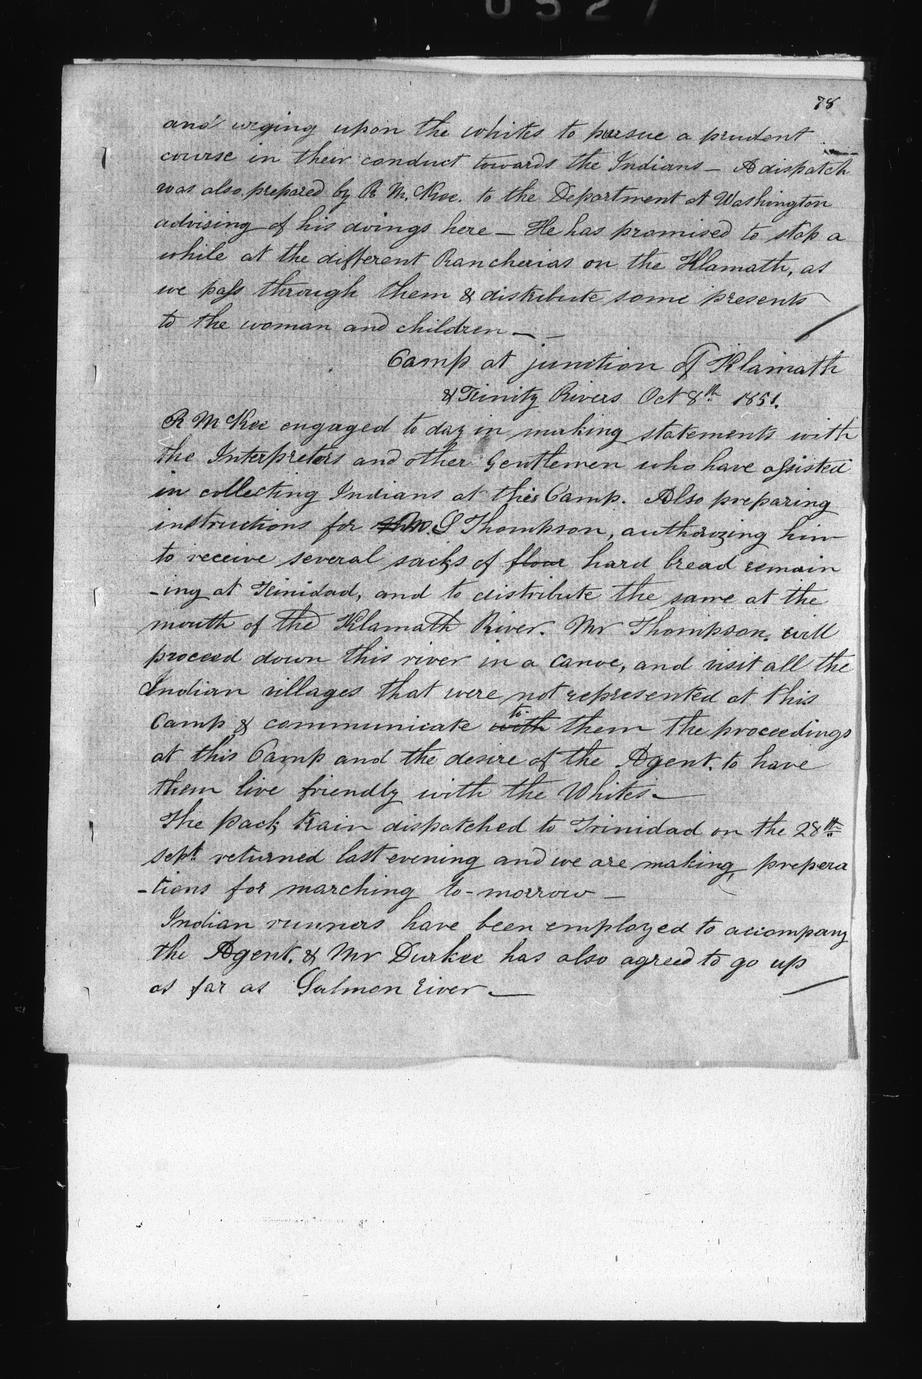 0527
78
and urging upon the whites to persue a prudent
course in their conduct towards the Indians — A dispatch
was also prepared by R McKee. to the Department at Washington
advising of his doings here — He has promised to stop a
while at the different Rancherias on the Klamath, as
we pass through them & distribute some presents
to the woman and children —
Camp at junction of Klamath
& Trinity Rivers Oct 8th 1851.
R McKee engaged to day in making statements with
the Interpreters and other Gentlemen who have assisted
in collecting Indians at this Camp. Also preparing
instructions for Wm. S Thompson, authorizing him
to receive several sacks of flour hard bread remain
-ing at Trinidad, and to distribute the same at the
mouth of the Klamath River. Mr Thompson, will
proceed down this river in a canoe, and visit all the
Indian villages that were not represented at this
Camp & communicate with to them the proceedings
at this Camp and the desire of the Agent. to have
them live friendly with the Whites —
The pack train dispatched to Trinidad on the 28th
Sept returned last evening and we are making prepera
-tions for marching to-morrow —
Indian runners have been employed to accompany
the Agent. & Mr Durkee has also agreed to go up
as far as Salmon River —